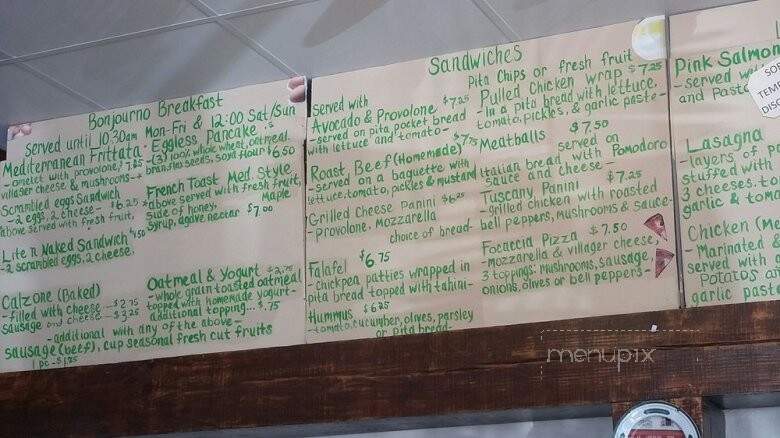 Bonjourno Breakfast
Served until 10:30am Mon-Fri & 12:00 Sat/Sun
Mediterranean Frittata
- omelet with provolone, 7.25
villager cheese & mushrooms -
Scrambled eggs Sandwich
- 2 eggs, 2 cheese - $6.25
above served with fresh fruit,
Lite n Naked Sandwich
- 2 scrambled eggs, 2 cheese,
Calzone (Baked)
- filled with cheese ...$2.75
sausage and cheese ...$3.25
- Eggless, Pancake,
- (3) 100% whole wheat, oatmeal,
bran, flax seeds, soya flour $6.50
French Toast Med. Style
above served with fresh fruit,
side of honey, Maple
syrup, agave nectar $7.00
Oatmeal & Yogurt $2.75
- whole grain toasted oatmeal
topped with homemade yogurt -
additional topping... $.75
- additional with any of the above -
sausage (beef), cup seasonal fresh cut fruits
1 pc -
Sandwiches
Served with
Pita Chips or fresh fruit
Avocado & Provolone, $7.25
- served on pita pocket bread
with lettuce and tomato -
Roast, Beef (Homemade) $7.75
- served on a baguette with
lettuce, tomato, pickles & mustard
Grilled Cheese Panini $6.25
- provolone, Mozzarella
choice of bread -
Falafel $6.75
- chickpea patties wrapped in
pita bread topped with tahini -
Hummus $6.25
- tomato, cucumber, olives, parsley
or pita bread -
Pulled Chicken wrap $7.25
- in a pita bread with lettuce,
tomato, pickles, & garlic paste -
Meatballs $7.50
served on
Italian bread with Pomodoro
sauce and cheese -
Tuscany Panini $7.25
- grilled chicken with roasted
bell peppers, mushrooms & sauce -
Focaccia Pizza $7.50
- mozzarella & villager cheese,
3 toppings: mushrooms, sausage,
onions, olives or bell peppers -
Pink Salmon
- served
and Pasta
Lasagna
- layers of
stuffed with
3 cheeses, to
garlic & tom
Chicken (Me
- Marinated
served with g
Potatos a
garlic paste
SOR
TEM
DIS
menupix